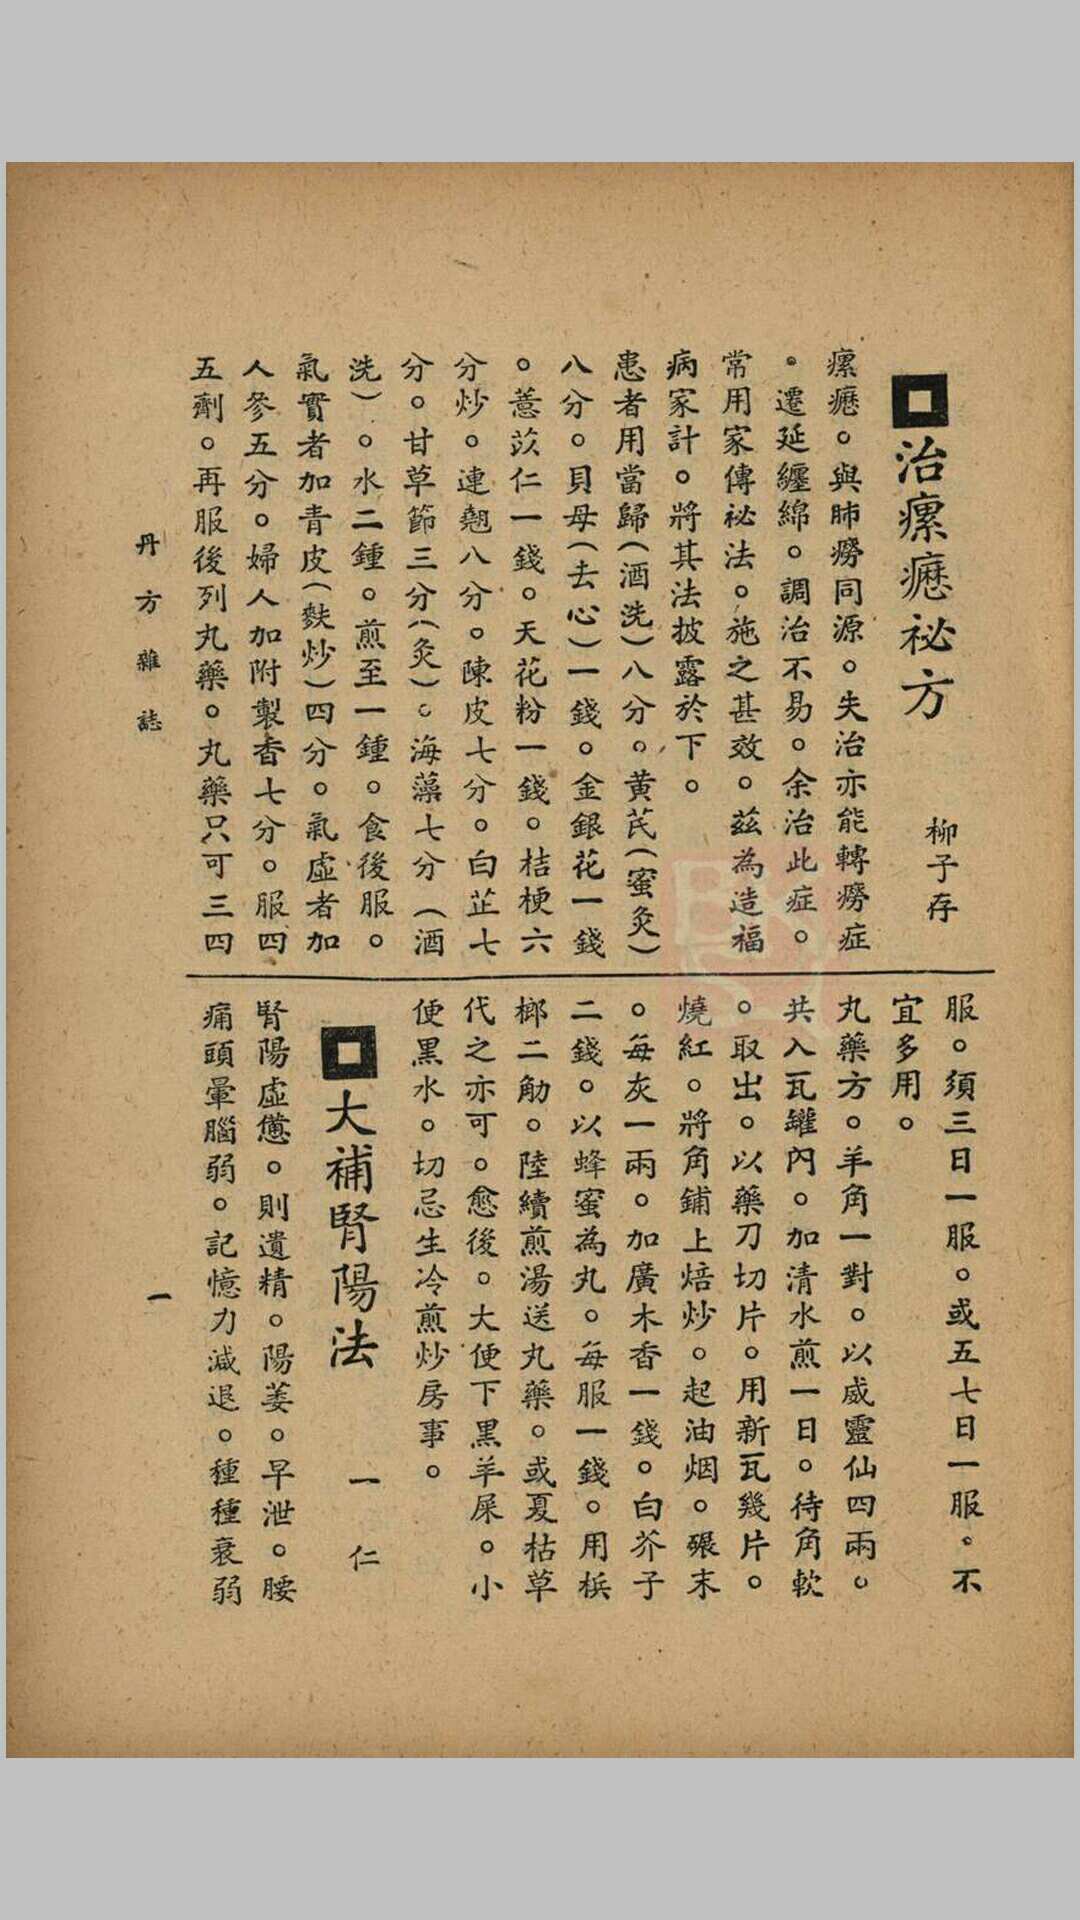 治瘰癧祕方
柳子存
瘰癧。與肺癆同源。失治亦能轉癆症
。遷延纏綿。調治不易。余治此症。
常用家傳祕法。施之甚效。茲為造福
病家計。將其法披露於下。
患者用當歸(酒洗)八分。黄芪(蜜灸)
八分。貝母(去心)一錢。金銀花一錢
。薏苡仁一錢。天花粉一錢。桔梗六
分炒。連翹八分。陳皮七分。白芷七
分。甘草節三分(灸)。海藻七分(酒
洗)。水二鍾。煎至一鍾。食後服。
氣實者加青皮(麩炒)四分。氣虛者加
人參五分。婦人加附製香七分。服四
五劑。再服後列丸藥。丸藥只可三四
服。須三日一服。或五七日一服。不
宜多用。
丸藥方。羊角一對。以威靈仙四兩。
共入瓦罐內。加清水煎一日。待角軟
。取出。以藥刀切片。用新瓦幾片。
燒紅。將角鋪上焙炒。起油烟。碾末
。每灰一兩。加廣木香一錢。白芥子
二錢。以蜂蜜為丸。每服一錢。用檳
榔二觔。陸續煎湯送丸藥。或夏枯草
代之亦可。愈後。大便下黑羊屎。小
便黑水。切忌生冷煎炒房事。
大補腎陽法
一仁
腎陽虛憊。則遺精。陽萎。早泄。腰
痛頭暈腦弱。記憶力減退。種種衰弱
丹方雜誌
一